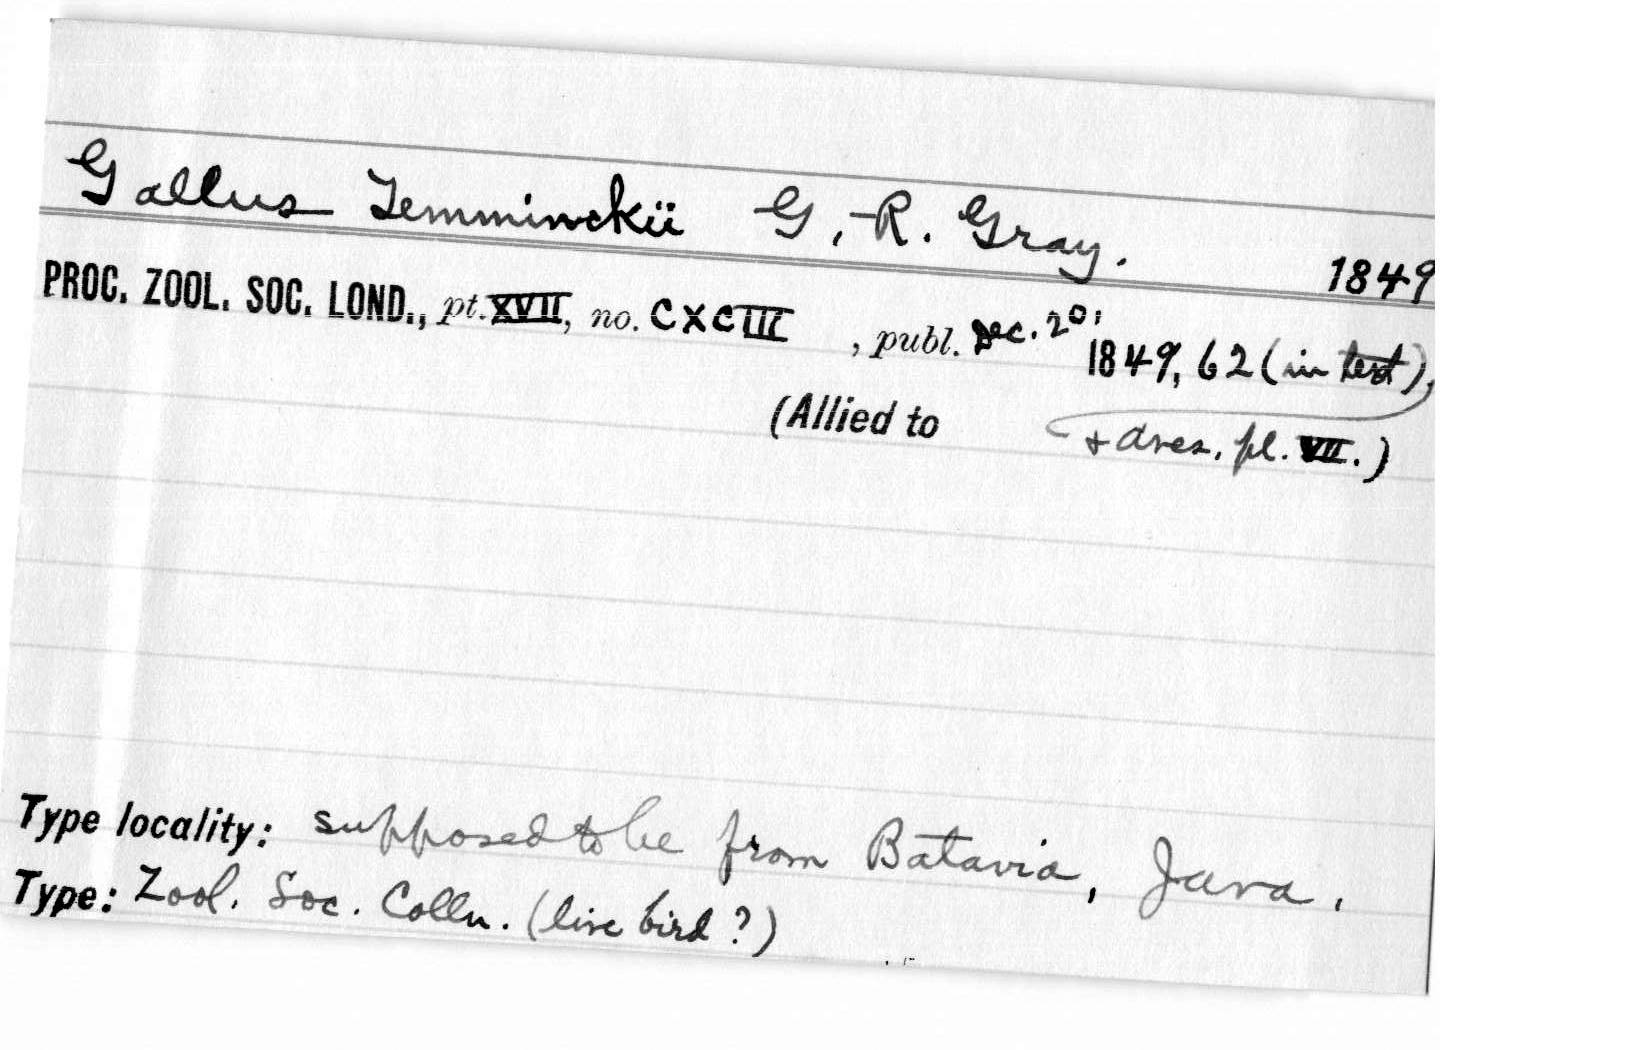 Gallus Temminckii G. R. Gray.
1849
PROC. ZOOL. SOC. LOND., pt. XVII, no. CXCIII, publ. Dec. 20, 1849, 62 (in text),
(Allied to
+ Aves, pl. VII.)
Type locality: supposed to be from Batavia, Java.
Type: Zool. Soc. Colln. (live bird?)